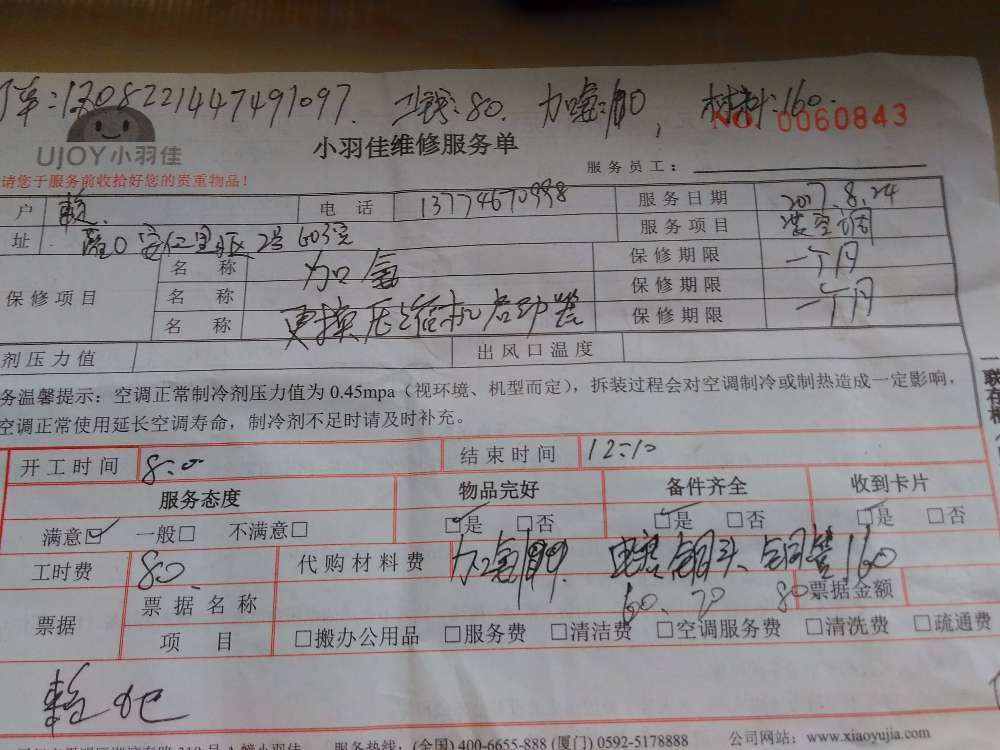 1708221447491097. 工钱:80. 加氟: 材料:160.
UJOY小羽佳
小羽佳维修服务单
NO. 0060843
请您于服务前收拾好您的贵重物品!
服务员工:
户 电话 服务日期 2017.8.24
址 2号603室 服务项目 装空调
保修项目
名 称 加氟 保修期限 一个月
名 称 保修期限
名 称 更换压缩机启动器 保修期限 一个月
剂压力值 出风口温度
务温馨提示:空调正常制冷剂压力值为 0.45mpa(视环境、机型而定),拆装过程会对空调制冷或制热造成一定影响,
空调正常使用延长空调寿命,制冷剂不足时请及时补充。
开工时间 结束时间 12:10
服务态度 物品完好 备件齐全 收到卡片
满意☑ 一般□ 不满意□ ☑是 □否 ☑是 □否 ☑是 □否
工时费 80. 代购材料费 加氟 铜头、铜管160
60、 80
票据 票据名称 票据金额
项 目 □搬办公用品 □服务费 □清洁费 □空调服务费 □清洗费 □疏通费
服务热线:(全国) 400-6655-888 (厦门) 0592-5178888 公司网站:www.xiaoyujia.com